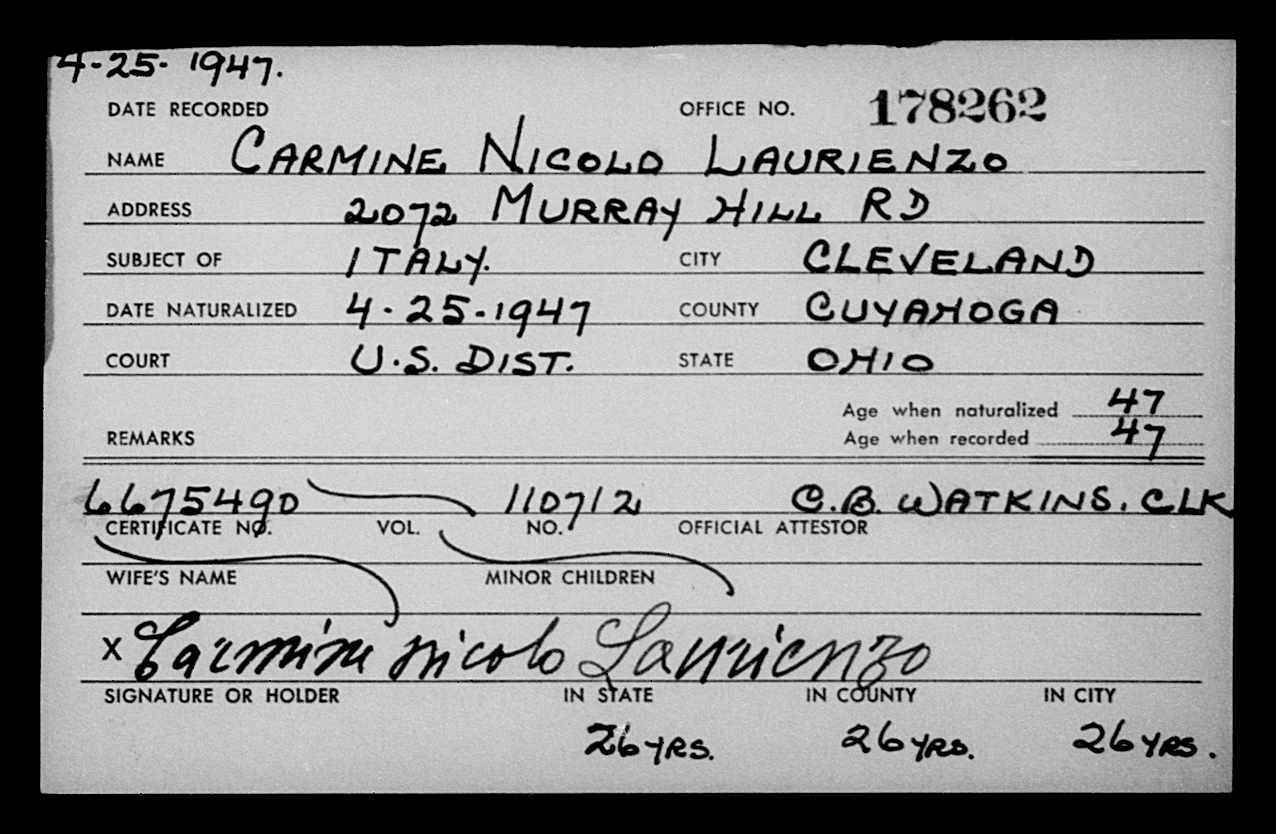 4-25-1947.
DATE RECORDED OFFICE NO. 178262
NAME CARMINE NICOLO LAURIENZO
ADDRESS 2072 MURRAY HILL RD
SUBJECT OF ITALY. CITY CLEVELAND
DATE NATURALIZED 4-25-1947 COUNTY CUYAHOGA
COURT U.S. DIST. STATE OHIO
Age when naturalized 47
REMARKS Age when recorded 47
6675490 110712 C.B. WATKINS. CLK
CERTIFICATE NO. VOL. NO. OFFICIAL ATTESTOR
WIFE'S NAME MINOR CHILDREN
X Carmine Nicolo Laurienzo
SIGNATURE OR HOLDER IN STATE IN COUNTY IN CITY
26 YRS. 26 YRS. 26 YRS.